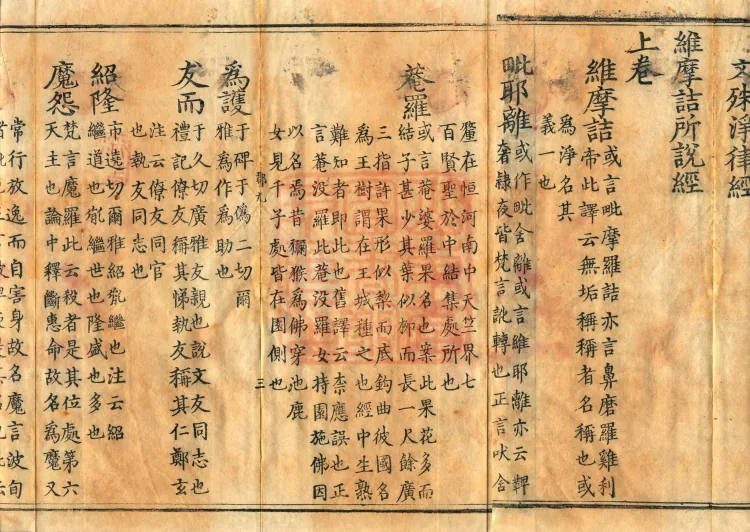 文殊淨律經
維摩詰所說經
上卷
維摩詰
或言毗摩羅詰亦言鼻磨羅雞利
帝此譯云無垢稱稱者名稱也或
為淨名其
義一也
毗耶離
或作毗舍離或言維耶離亦云鞞
奢隸夜皆梵言訛轉也正言吠舍
釐在恒河南中天竺界七
百賢聖於中結集處所也
菴羅
或言菴婆羅果名也案此果花多而
結子甚少其葉似柳而長一尺餘廣
三指許果形似梨而底鉤曲彼國名
為王樹謂在王城種之也經中生熟
難知者即此也舊譯云柰應誤也正
言菴没羅此菴没羅女持園施佛因
以名焉昔獼猴為佛穿池鹿
女見千子處皆在園側也
三
為護
于碑于僞二切爾
雅為作為助也
友而
于久切廣雅友親也說文友同志也
禮記僚友稱其悌執友稱其仁鄭玄
注云僚友同官
也執友同志也
紹隆
市遶切爾雅紹胤繼也注云紹
繼道也胤繼世也隆盛也多也
魔怨
梵言魔羅此云殺者是其位處第六
天主也論中釋斷惠命故名為魔又
常行放逸而自害身故名魔言波旬